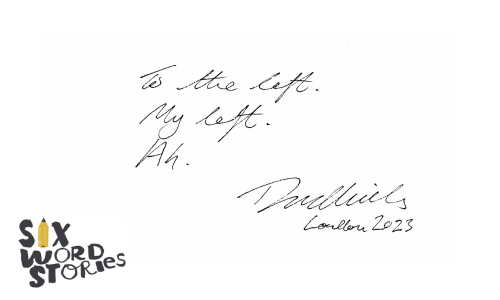 To the left.
My left.
Ah.
London 2023
SIX
WORD
STORIES